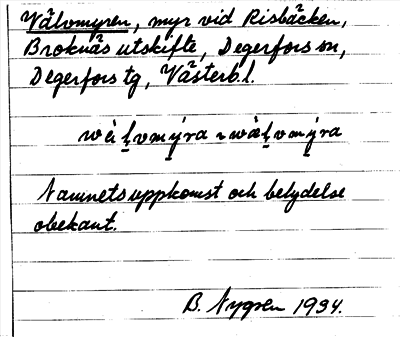 Välvmyren, myr vid Risbäcken,
Broknäs utskifte, Degerfors sn,
Degerfors tg, Västerb.l.
Namnets uppkomst och betydelse
obekant.
B. Nygren 1934.